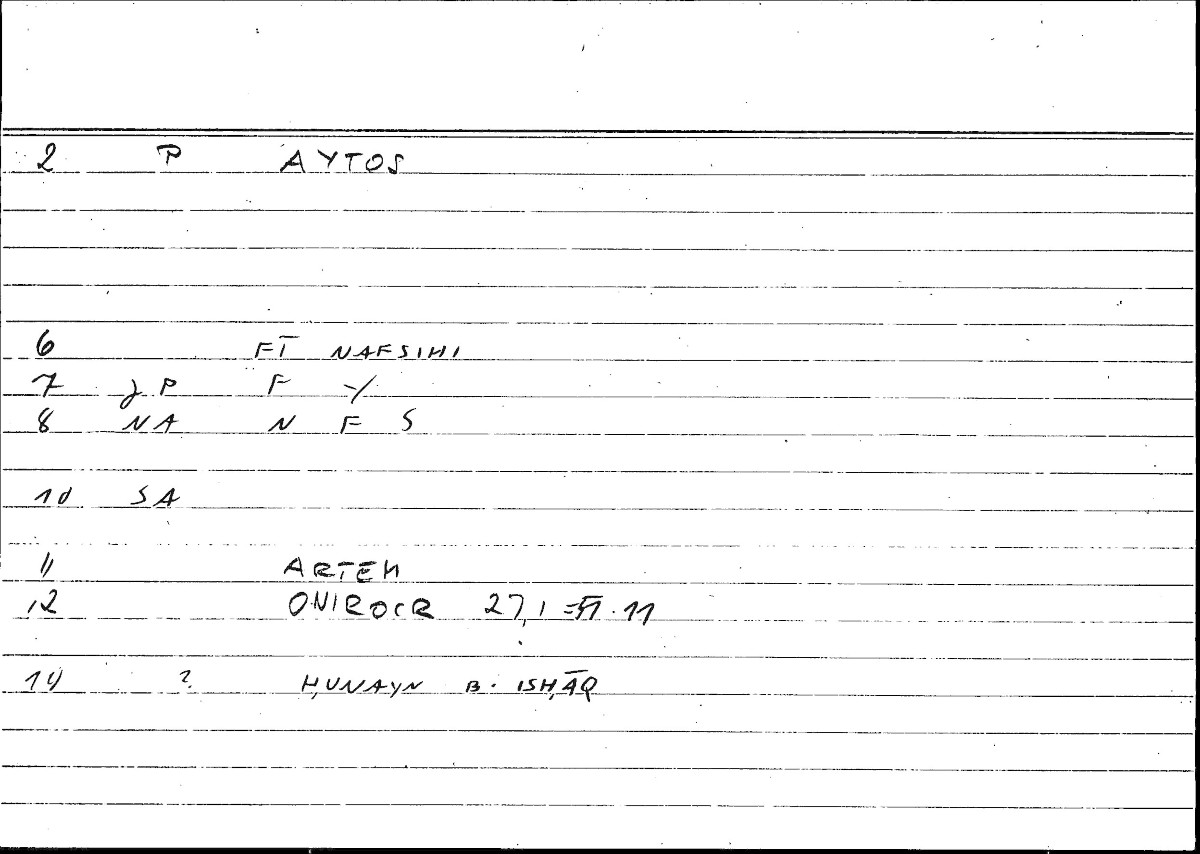 2 P AYTOS
6 FĪ NAFSIHI
7 P F
8 NA N F S
10 SA
11 ARTEM
12 ONIROCR 27,1 = 11
14 ? ḤUNAYN B. ISḤĀQ